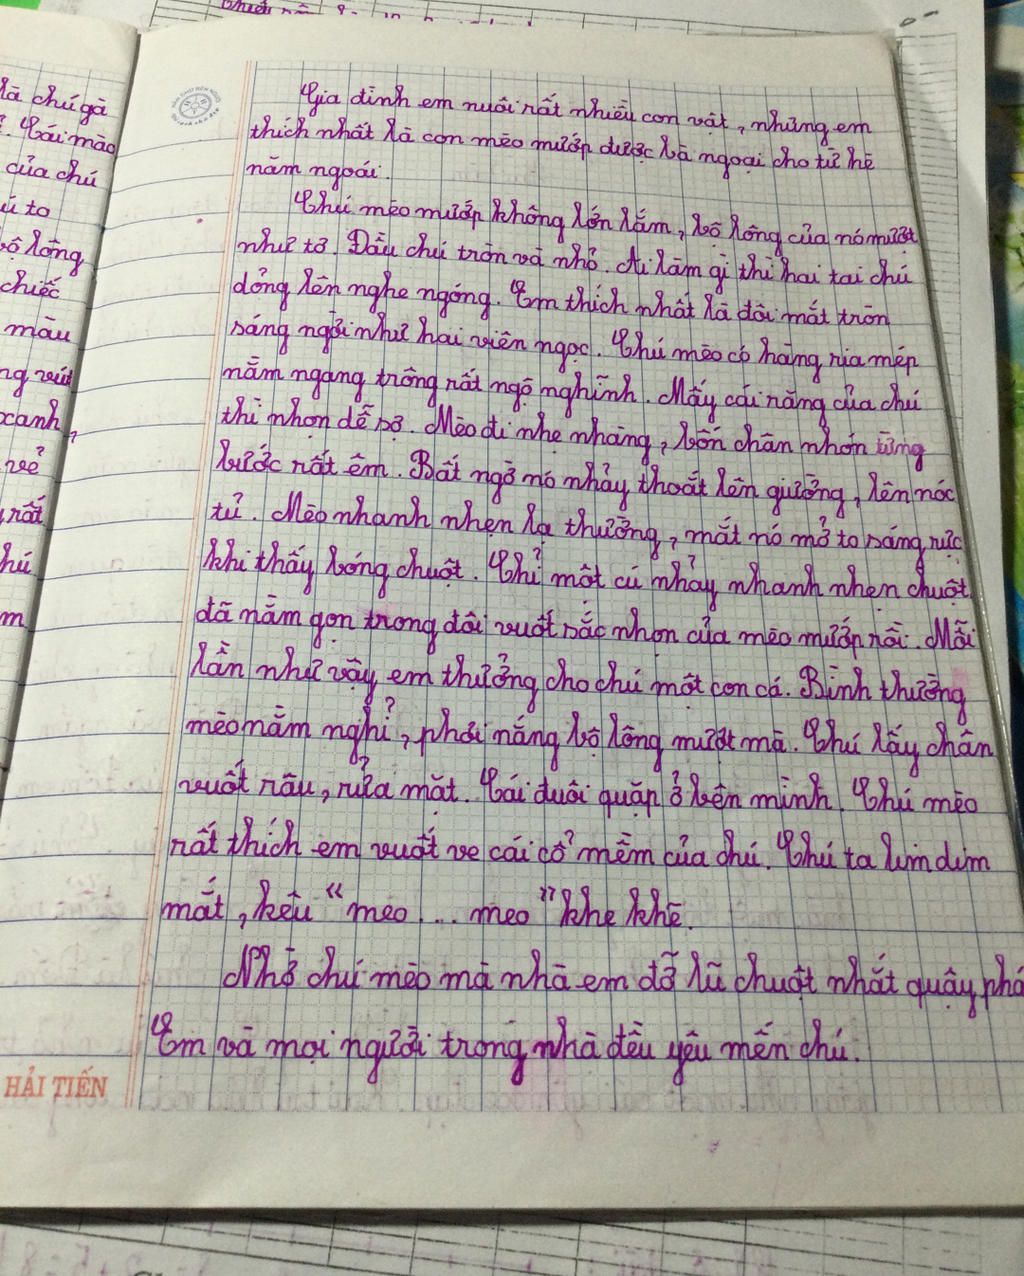 Gia đình em nuôi rất nhiều con vật, nhưng em
thích nhất là con mèo mướp được bà ngoại cho từ hè
năm ngoái.
Chú mèo mướp không lớn lắm, bộ lông của nó mượt
như tơ. Đầu chú tròn và nhỏ. Ai làm gì thì hai tai chú
dỏng lên nghe ngóng. Em thích nhất là đôi mắt tròn
sáng ngời như hai viên ngọc. Chú mèo có hàng ria mép
nằm ngang trông rất ngộ nghĩnh. Mấy cái răng của chú
thì nhọn dễ sợ. Mèo đi nhẹ nhàng, bốn chân nhón từng
bước rất êm. Bất ngờ nó nhảy thoắt lên giường, lên nóc
tủ. Mèo nhanh nhẹn lạ thường, mắt nó mở to sáng rực
khi thấy bóng chuột. Chỉ một cú nhảy nhanh nhẹn chuột
đã nằm gọn trong đôi vuốt sắc nhọn của mèo mướp rồi. Mỗi
lần như vậy em thưởng cho chú một con cá. Bình thường
mèo nằm nghỉ, phơi nắng bộ lông mượt mà. Chú lấy chân
vuốt râu, rửa mặt. Cái đuôi quặp ở bên mình. Chú mèo
rất thích em vuốt ve cái cổ mềm của chú. Chú ta lim dim
mắt, kêu "meo ... meo" khe khẽ.
Nhờ chú mèo mà nhà em đỡ lũ chuột nhắt quậy phá
Em và mọi người trong nhà đều yêu mến chú.
HẢI TIẾN
là chú gà
Cái mào
của chú
to
bộ lông
chiếc
màu
xanh,
vẻ
rất